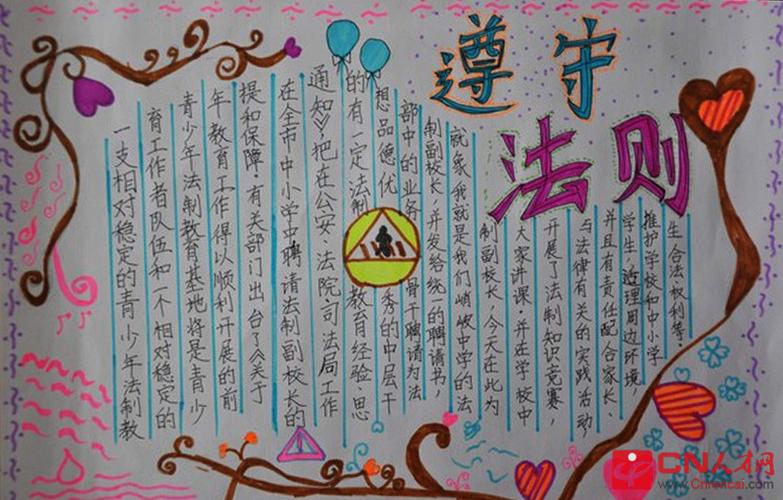 遵守
法则
一支相对稳定的青少年法制教
育工作者队伍和一个相对稳定的
青少年法制教育基地将是青少
年教育工作得以顺利开展的前
提和保障.有关部门出台了《关于
在全市中小学中聘请法制副校长的
通知》,把在公安、法院、司法局工作
的有一定法制教育经验、思
想品德优秀的中层干
部中的业务骨干聘请为法
制副校长,并发给统一的聘请书,
就象我就是我们峭岐中学的法
制副校长,今天在此为
大家讲课.并在学校中
开展了法制知识竞赛,
与法律有关的实践活动,
并且有责任配合家长、
学生理周边环境,
推护学校和中小学
生合法权利等.
CN人才网
www.cnrencai.com